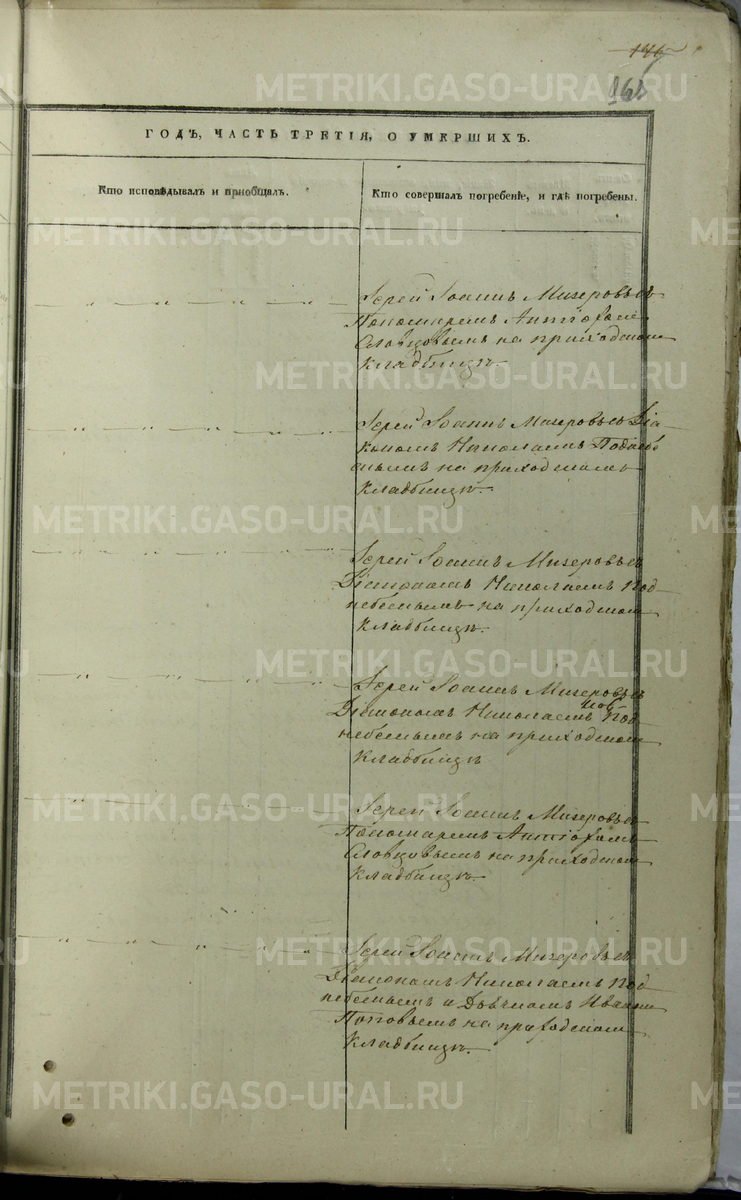 146
165
ГОДѢ, ЧАСТЬ ТРЕТІЯ, О УМЕРШИХЪ.
Кто исповѣдывалъ и пріобщалъ.
Кто совершалъ погребеніе, и гдѣ погребены.
Іерей Іоаннъ Мизеровъ съ
Пономаремъ
Словцовымъ на приходском
кладбищѣ.
Іерей Іоаннъ Мизеровъ съ Діа-
кономъ Николаемъ Поднебе
снымъ на приходскомъ
кладбищѣ.
Іерей Іоаннъ Мизеровъ съ
Діакономъ Николаемъ Под-
небеснымъ на приходском
кладбищѣ.
Іерей Іоаннъ Мизеровъ съ
Діакономъ Николаемъ Под
небеснымъ на приходском
кладбищѣ
Іерей Іоаннъ Мизеровъ съ
Пономаремъ
Словцовымъ на приходском
кладбищѣ.
Іерей Іоаннъ Мизеровъ съ
Діакономъ Николаемъ Под
небеснымъ и Дьячкомъ Иваном
Поповымъ на приходском
кладбищѣ.
METRIKI.GASO-URAL.RU